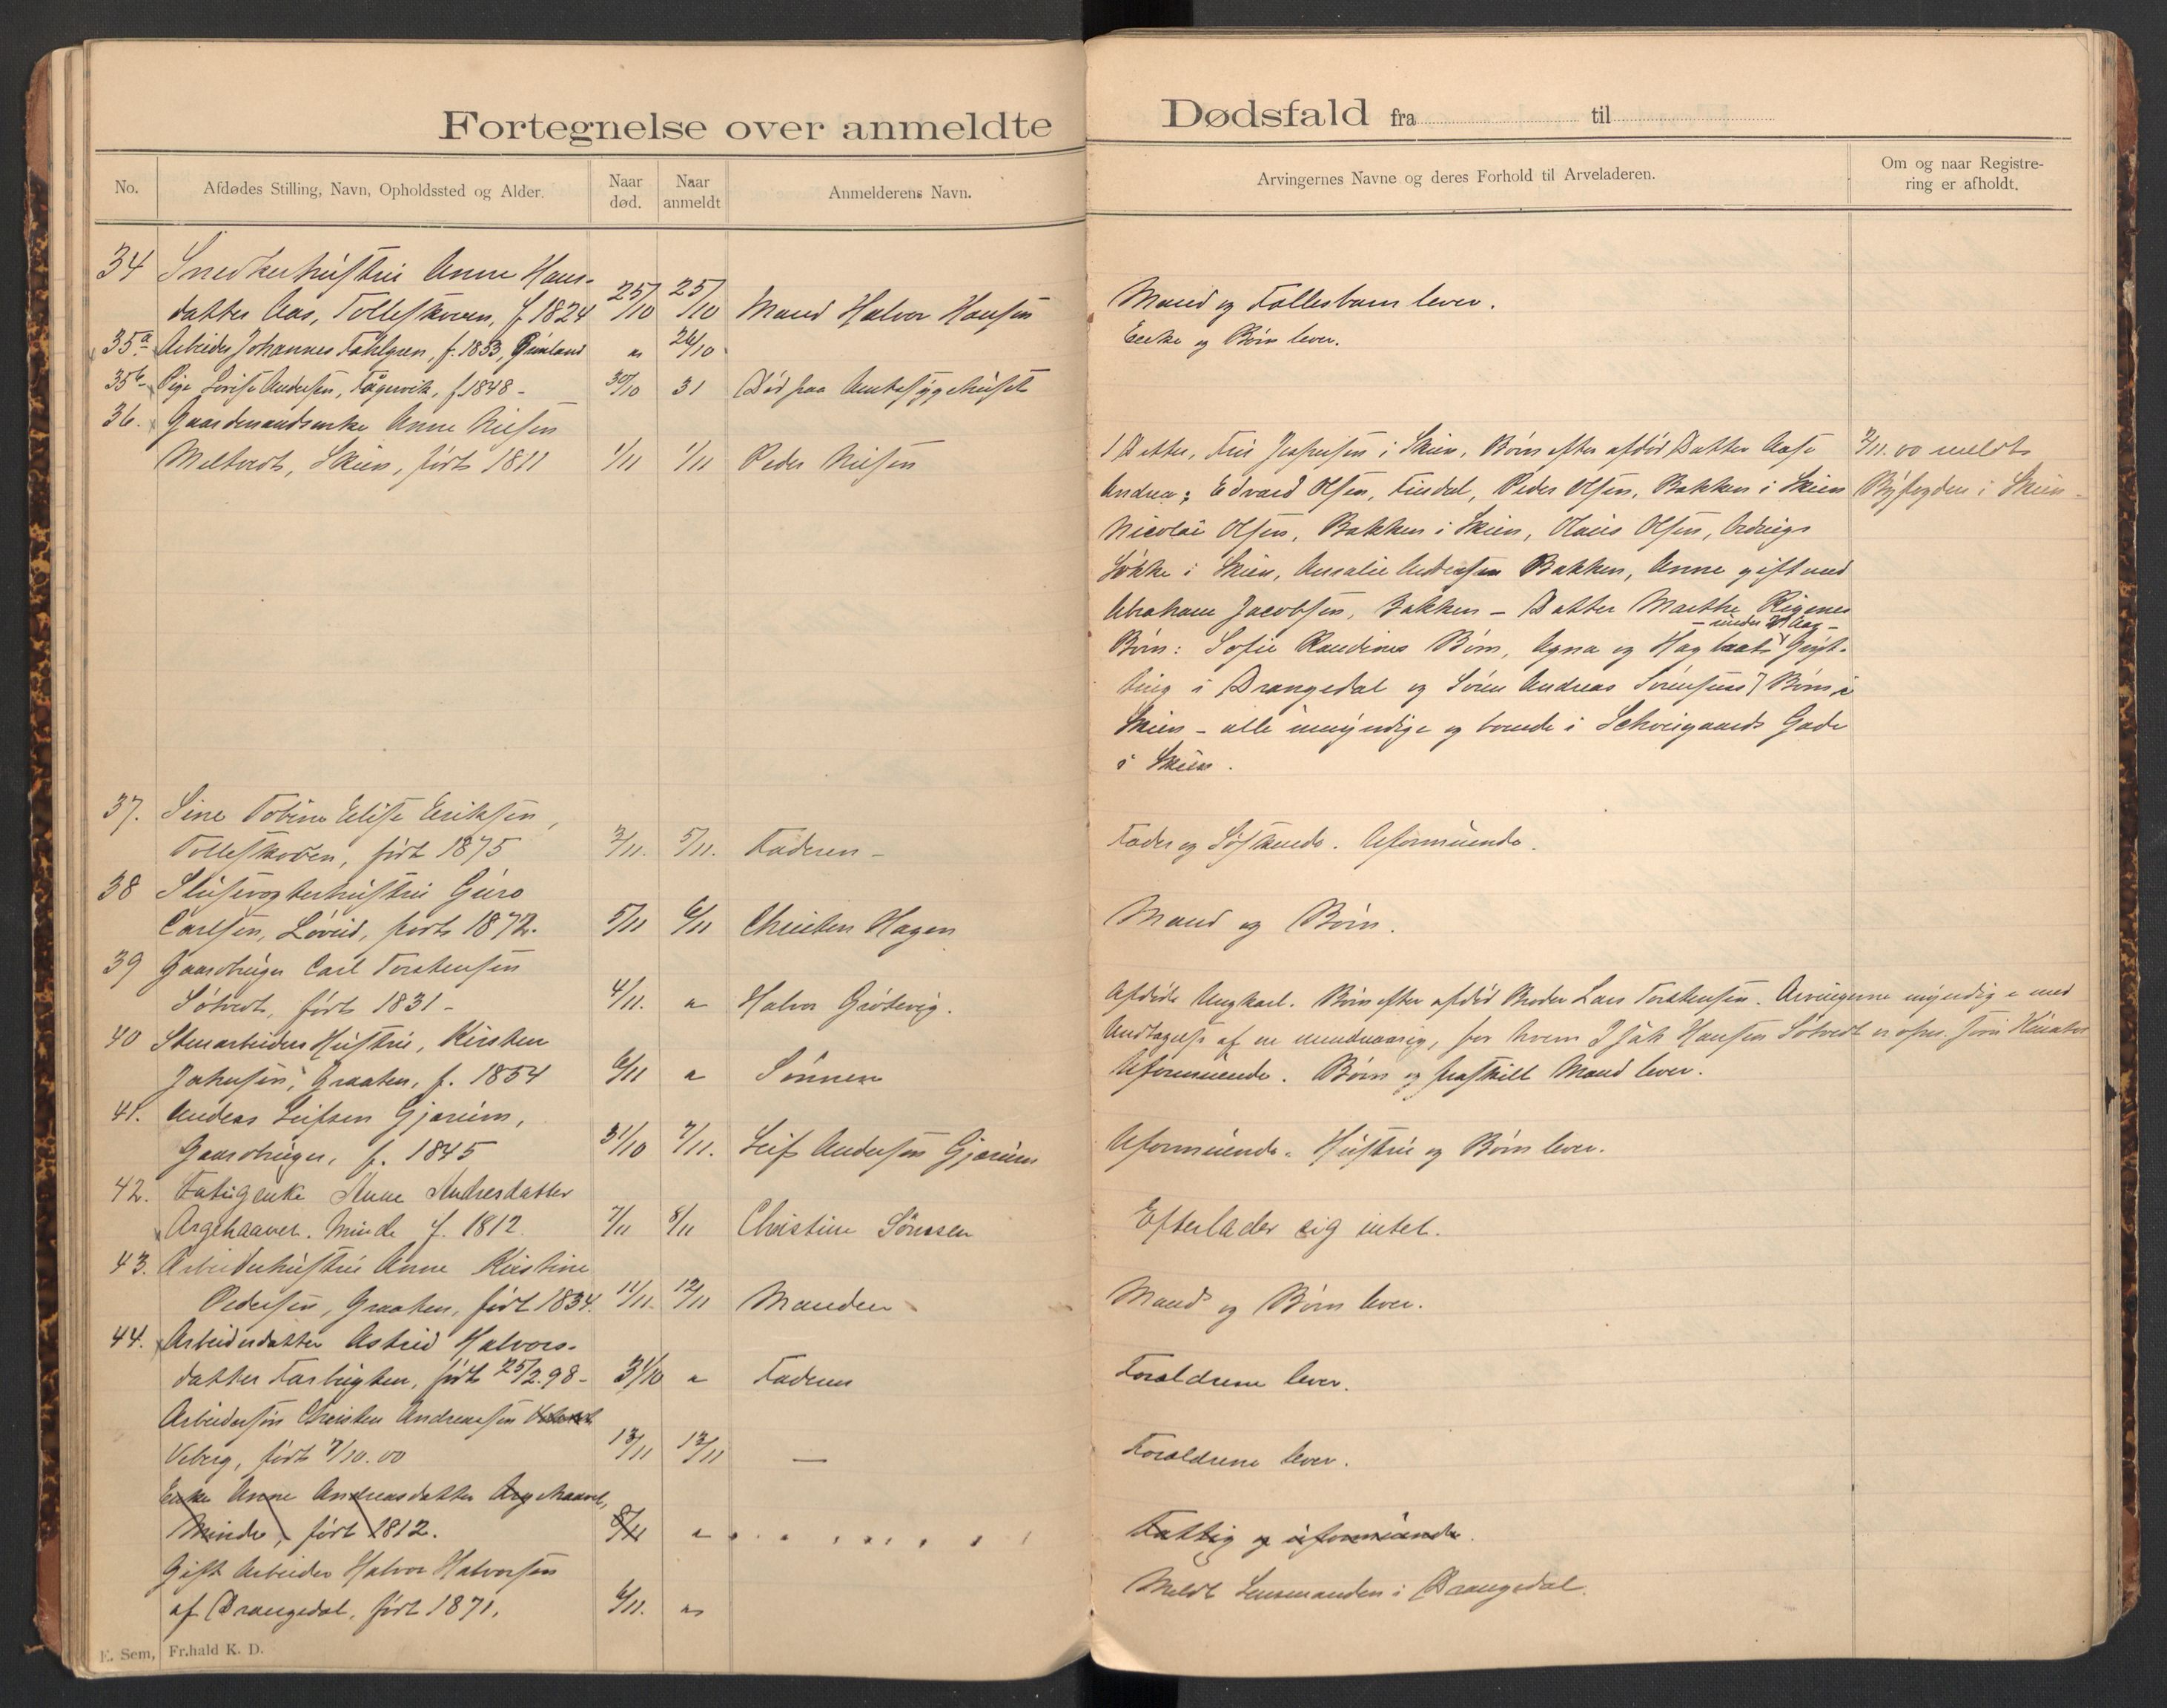 Fortegnelse over anmeldte Dødsfald fra til
No. Afdødes Stilling, Navn, Opholdssted og Alder. Naar død. Naar anmeldt Anmelderens Navn. Arvingernes Navne og deres Forhold til Arveladeren. Om og naar Registrering er afholdt.
34 Snedkerhustru Anne Hans-
datter Aas, Tollefskoven, f 1824 25/10 25/10 Mand Halvor Hansen Mand og Fællesbarn lever.
35a Arbeider Johannes Fahlgren, f. 1853, " 26/10 Enke og Børn lever.
35b Pige Lovise Andersen, f. 1848 - 30/10 31 Død paa Amtssygehuset
36. Gaardmandsenke Anne Nilsen
Meltvedt, Skien, født 1811 1/11 1/11 Peder Nilsen
1 Datter, Fru Jespersen i Skien, Børn efter afdød Datter Aase 2/11.00 meldt
Andrea: Edvard Olsen, Peder Olsen, Bakken i Skien Byfogden i Skien.
Nicolai Olsen, Bakken i Skien, Olaus Olsen,
Løkke i Skien, Bakken, Anne gift med
Abraham Jacobsen, Bakken - Datter Marthe
- under 21 Aar -
Børn: Sofie Børn, Agna og Grøt-
i Drangedal og Søren Andreas Sørensens Børn i
Skien - alle umyndige og boende i Schweigaards Gade
i Skien.
37. Sine Tobine Elise Eriksen,
Tollefskoven, født 1875 3/11. 5/11. Faderen - Fader og Søskende. Uformuende.
38 Slusevogterhustru Guro
Carlsen, Løveid, født 1872. 5/11 6/11 Christen Hagen Mand og Børn.
39 Gaardbruger Carl Torstensen
Søtvedt, født 1831 - 4/11. " Halvor Grøtevig.
Afdøde Ungkarl. Børn efter afdød Broder Lars Torstensen. Arvingerne myndige med
Undtagelse af en mindreaarig, for hvem Hansen Søtvedt er opn. som Kurator
40 Stenarbeiders Hustru, Kirsten
Johnsen, Graaten, f. 1854 6/11 " Sønnen Uformuende. Børn og fraskilt Mand lever.
41. Anders Leifsen Gjærum,
Gaardbruger, f. 1845 31/10 7/11. Leif Andersen Gjærum Uformuende. Hustru og Børn lever.
42. Fattigenke Anne Andresdatter
Argehaavet. Minde f. 1812. 7/11 8/11 Christine Sørensen Efterlader sig intet.
43. Arbeiderhustru Anne Kirstine
Pedersen, Graaten, født 1834. 11/11. 12/11 Manden Mand og Børn lever.
44. Arbeiderdatter Astrid Halvors-
datter født 25/2.98 - 31/10 " Faderen Forældrene lever.
Arbeidersøn Christen Andreassen
Viberg, født 7/10.00 13/11 13/11 — Forældrene lever.
Enke Anne Andreasdatter Argehaavet,
Minde, født 1812. 8/11 " Fattig og uformuende.
Gift Arbeider Halvor Halvorsen
af Drangedal, født 1871. 6/11. " Meldt Lensmanden i Drangedal.
E. Sem, Fr.hald K. D.